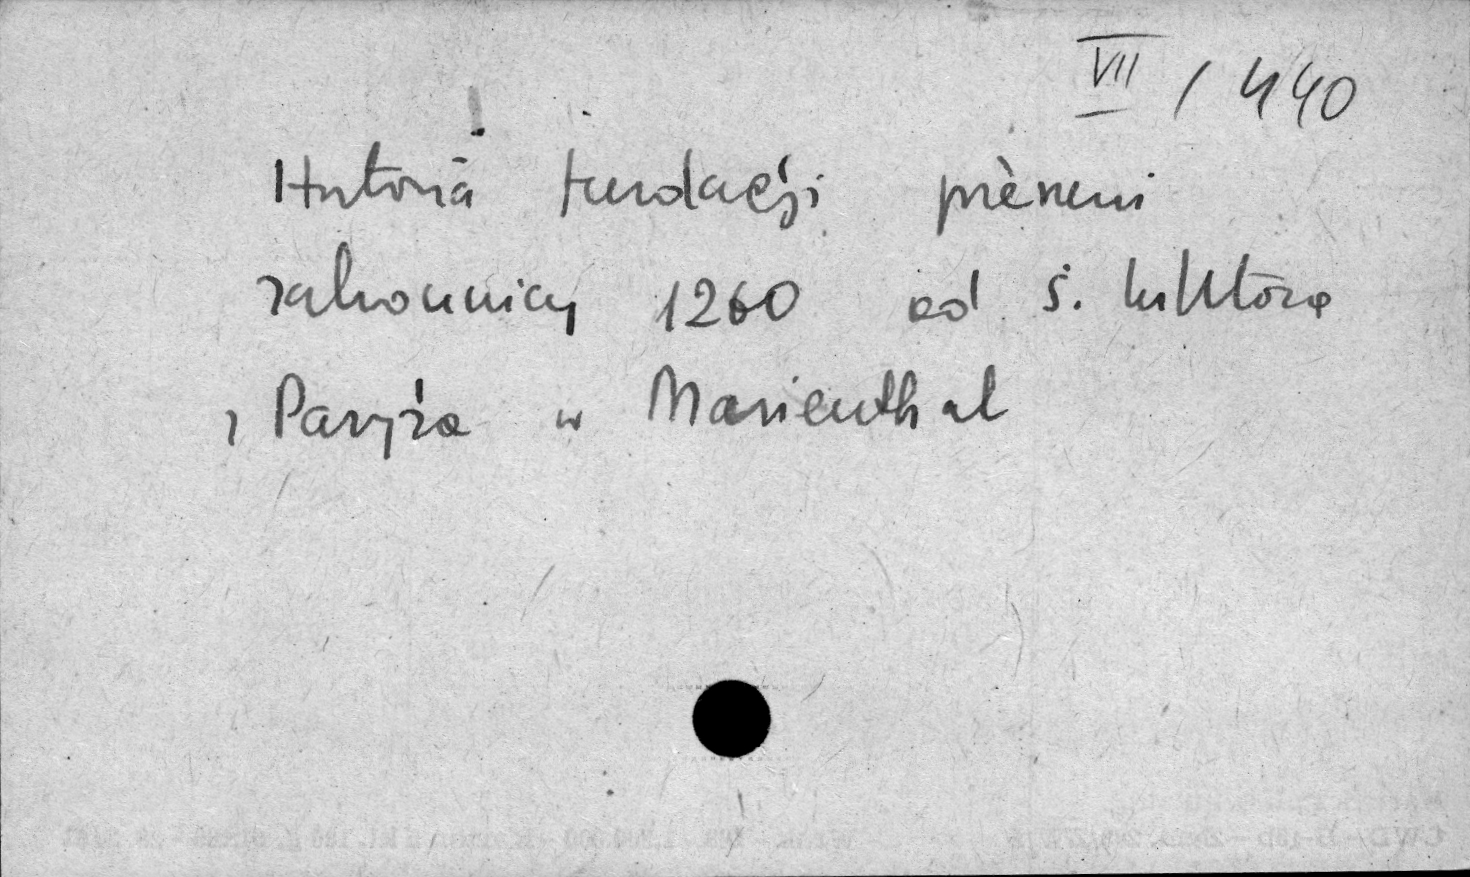 VII / 440
Historia fundacji prèneni
zakonnicy 1260 od ś. Wiktora
z Paryża w Marienthal